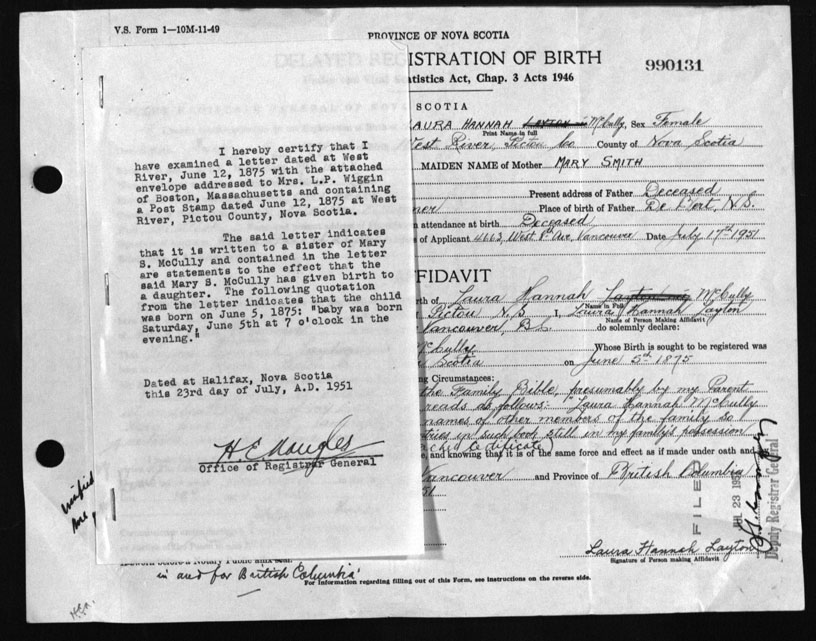 V.S. Form 1—10M-11-49
PROVINCE OF NOVA SCOTIA
DELAYED REGISTRATION OF BIRTH
990131
Statistics Act, Chap. 3 Acts 1946
SCOTIA
LAURA HANNAH McCully, Sex Female
Print Name in full
West River, Pictou Co County of Nova Scotia
MAIDEN NAME of Mother MARY SMITH
Present address of Father Deceased
Place of birth of Father De Bert, N.S.
attendance at birth Deceased
of Applicant 4663, West 8th Ave, Vancouver Date July 17th 1951
I hereby certify that I
have examined a letter dated at West
River, June 12, 1875 with the attached
envelope addressed to Mrs. L.P. Wiggin
of Boston, Massachusetts and containing
a Post Stamp dated June 12, 1875 at West
River, Pictou County, Nova Scotia.
The said letter indicates
that it is written to a sister of Mary
S. McCully and contained in the letter
are statements to the effect that the
said Mary S. McCully has given birth to
a daughter. The following quotation
from the letter indicates that the child
was born on June 5, 1875: "baby was born
Saturday, June 5th at 7 o'clock in the
evening."
Dated at Halifax, Nova Scotia
this 23rd day of July, A.D. 1951
Office of Registrar General
AFFIDAVIT
of Laura Hannah Layton McCully
Name in Full
Pictou N.S I, Laura Hannah Layton
Name of Person Making Affidavit
Vancouver, B.C. do solemnly declare:
McCully Whose Birth is sought to be registered was
Scotia on June 5th 1875
Circumstances:
the Family Bible, presumably by my Parent
reads as follows: "Laura Hannah McCully
names of other members of the family so
in such book still in my family's possession
and knowing that it is of the same force and effect as if made under oath and
Vancouver and Province of British Columbia
51
FILED
JUL 23 195
Deputy Registrar General
Laura Hannah Layton
Signature of Person Making Affidavit
in and for British Columbia
For information regarding filling out of this Form, see instructions on the reverse side.